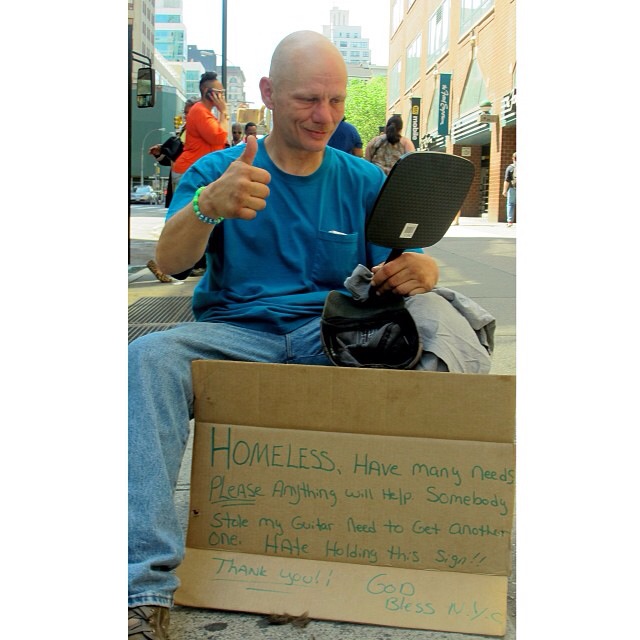 mobile
HOMELESS, HAVE many needs
PLEASE Anything will Help Somebody
Stole my Guitar Need to Get another
one. HATE Holding this Sign!!
THANK you!!
GOD
Bless N.Y.C